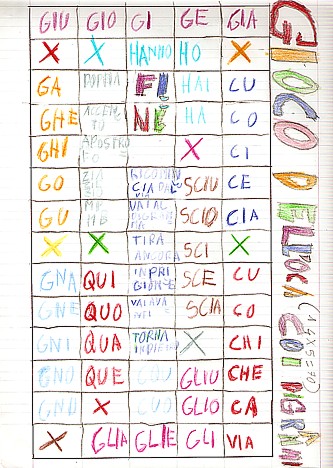 GIU GIO GI GE GIA
X X HANNO HO X
GA DOPPIA FI HAI CU
GHE ACCEN
TO NE HA CO
GHI APOSTRO
FO X CI
GO RICOMIN
CIA DAL SCIU CE
GU MP
MB VAI AL SCIO CIA
X X TIRA
ANCORA SCI X
GNA QUI IN PRI
GIONE SCE CU
GNE QUO VAI AVA
NTI SCIA CO
GNI QUA TORNA
INDIETRO X CHI
GNO QUE GLIU CHE
GNU X CUO GLIO CA
X GLIA GLIE GLI VIA
GIOCO DELL'OCA CON DIGRAMMI
(14X5=70)